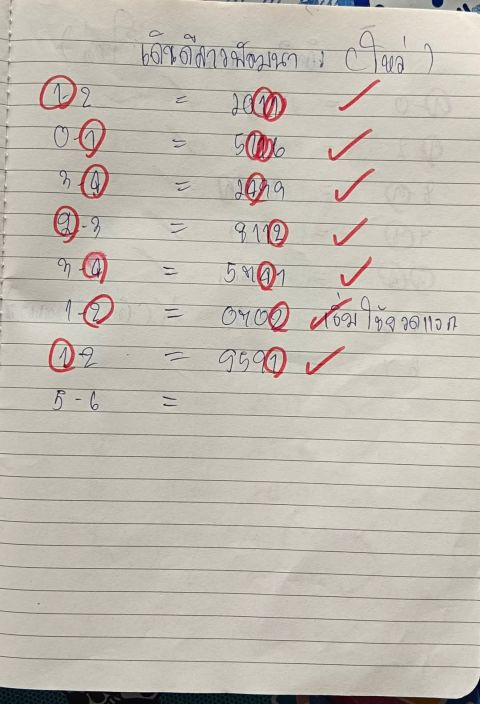 เดินดีลาวพัฒนา : (ใหม่)
1-2 = 2011
0-1 = 5116
3-4 = 2499
2-3 = 8112
3-4 = 5741
1-2 = 0702
1-2 = 9591
5-6 =